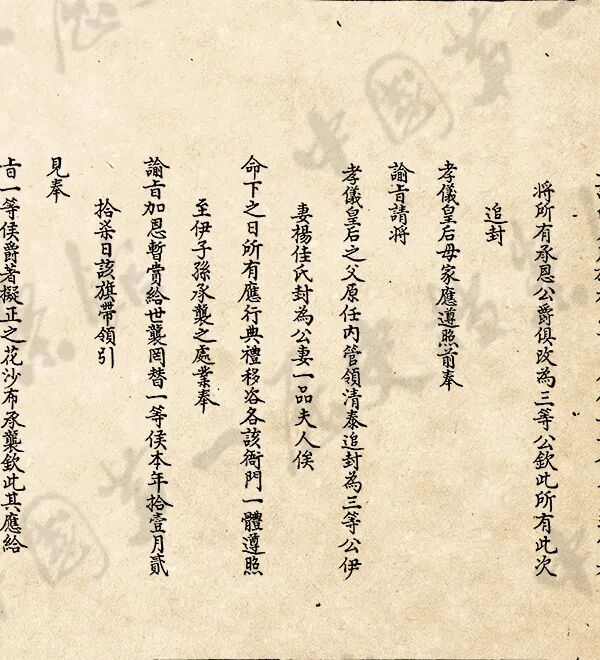 將所有承恩公爵俱改為三等公欽此所有此次
追封
孝儀皇后母家應遵照前奉
諭旨請將
孝儀皇后之父原任內管領清泰追封為三等公伊
妻楊佳氏封為公妻一品夫人俟
命下之日所有應行典禮移咨各該衙門一體遵照
至伊子孫承襲之處業奉
諭旨加恩暫賞給世襲罔替一等侯本年拾壹月貳
拾柒日該旗帶領引
見奉
旨一等侯爵著擬正之花沙布承襲欽此其應給